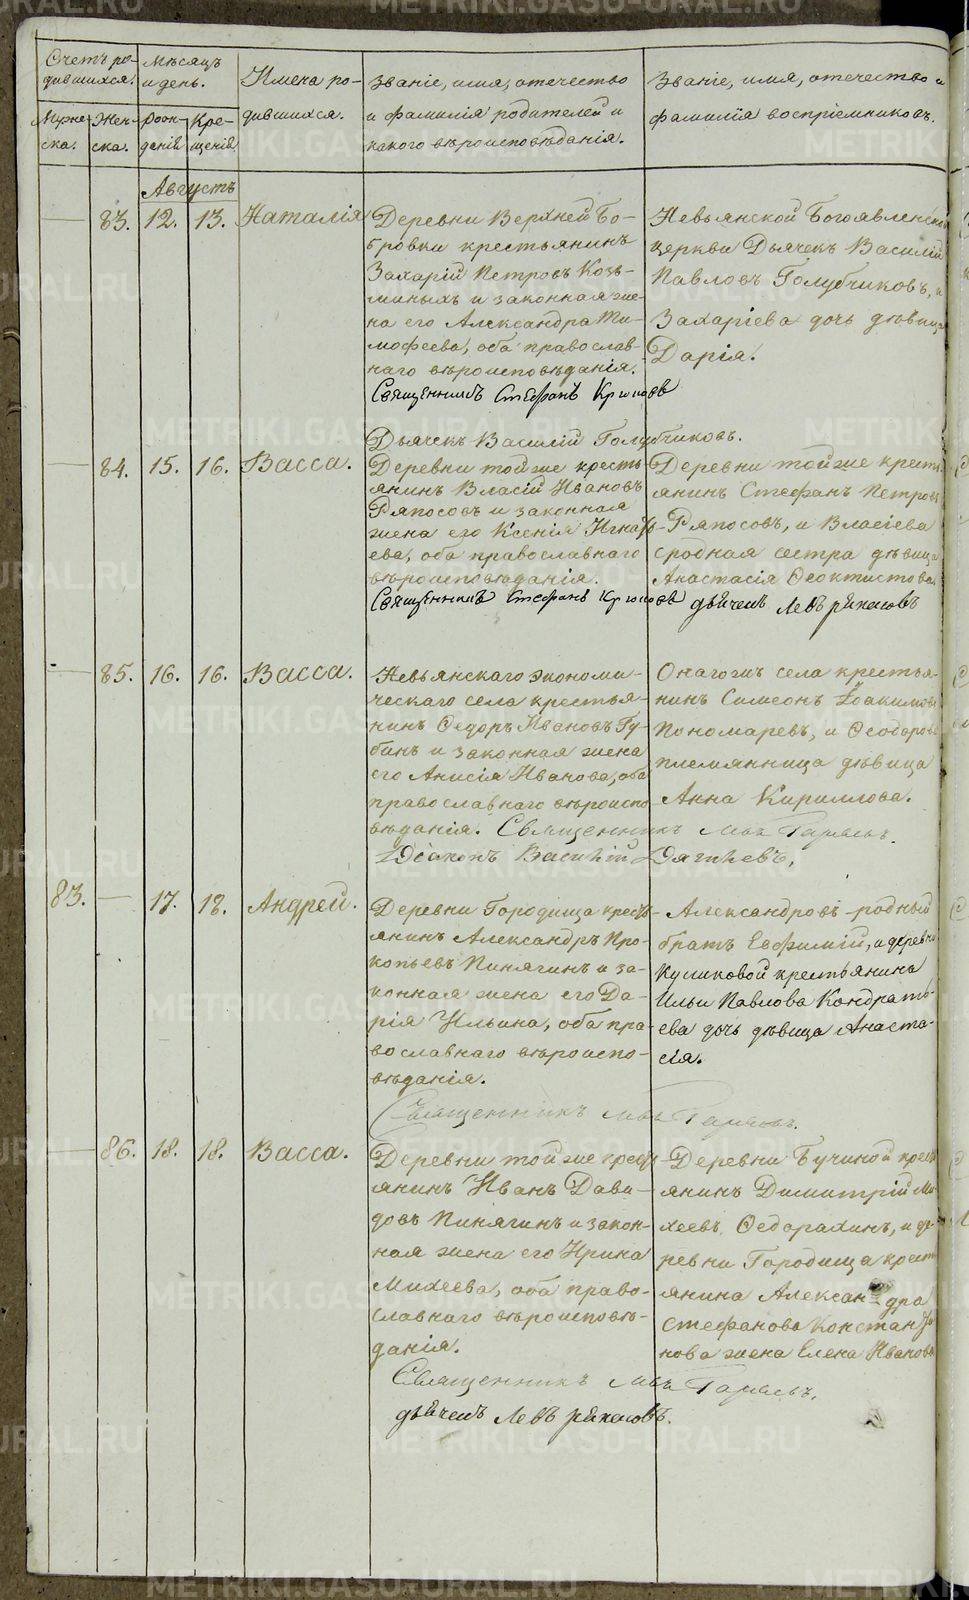 Счетъ ро-
дившихся.
Мѣсяцъ
и день.
Имена ро-
дившихся.
Званіе, имя, отечество
и фамилія родителей и
какого вѣроисповѣданія.
Званіе, имя, отечество и
фамилія воспріемниковъ.
Муже-
ска.
Жен-
ска.
Рож-
денія
Кре-
щенія
Августъ
83. 12. 13. Наталія
Деревни Верхней Бо-
бровки крестьянинъ
Захарій Петровъ Козь-
миныхъ и законная же-
на его Александра Ти-
мофеева, оба православ-
наго вѣроисповѣданія.
Священникъ Стефанъ
Дьячекъ Василій Голубчиковъ.
Невьянской Богоявленской
церкви Дьячекъ Василій
Павловъ Голубчиковъ, и
Захаріева дочь дѣвица
Дарія.
84. 15. 16. Васса.
Деревни той же кресть-
янинъ Власій Ивановъ
Ряпосовъ и законная
жена его Ксенія Игнать-
ева, оба православнаго
вѣроисповѣданія.
Священникъ Стефанъ
Деревни той же кресть-
янинъ Стефанъ Петровъ
Ряпосовъ, и Власіева
сродная сестра дѣвица
Анастасія Ѳеоктистова
дьячекъ Левъ
85. 16. 16. Васса.
Невьянскаго экономи-
ческаго села крестья-
нинъ Ѳедоръ Ивановъ Гу-
бинъ и законная жена
его Анисія Иванова, оба
православнаго вѣроиспо-
вѣданія. Священникъ
Діаконъ Василій
Онагожъ села крестья-
нинъ Симеонъ Іоакимовъ
Пономаревъ, и Ѳеодорова
племянница дѣвица
Анна Кириллова.
83. 17. 18. Андрей.
Деревни Городища кресть-
янинъ Александръ Про-
копьевъ Пинягинъ и за-
конная жена его Да-
рія Ильина, оба пра-
вославнаго вѣроиспо-
вѣданія.
Священникъ
Александровъ родный
братъ Евфимій, и деревни
Куликовой крестьянина
Ильи Павлова Кондрать-
ева дочь дѣвица Анаста-
сія.
86. 18. 18. Васса.
Деревни той же кресть-
янинъ Иванъ Дави-
довъ Пинягинъ и закон-
ная жена его Ирина
Михеева, оба право-
славнаго вѣроисповѣ-
данія.
Священникъ
дьячекъ Левъ
Деревни Бучиной кресть-
янинъ Димитрій Ми-
хеевъ Ѳедорахинъ, и де-
ревни Городища кресть-
янина Александра
Стефанова Констан-
нова жена Елена Иванова
METRIKI.GASO-URAL.RU